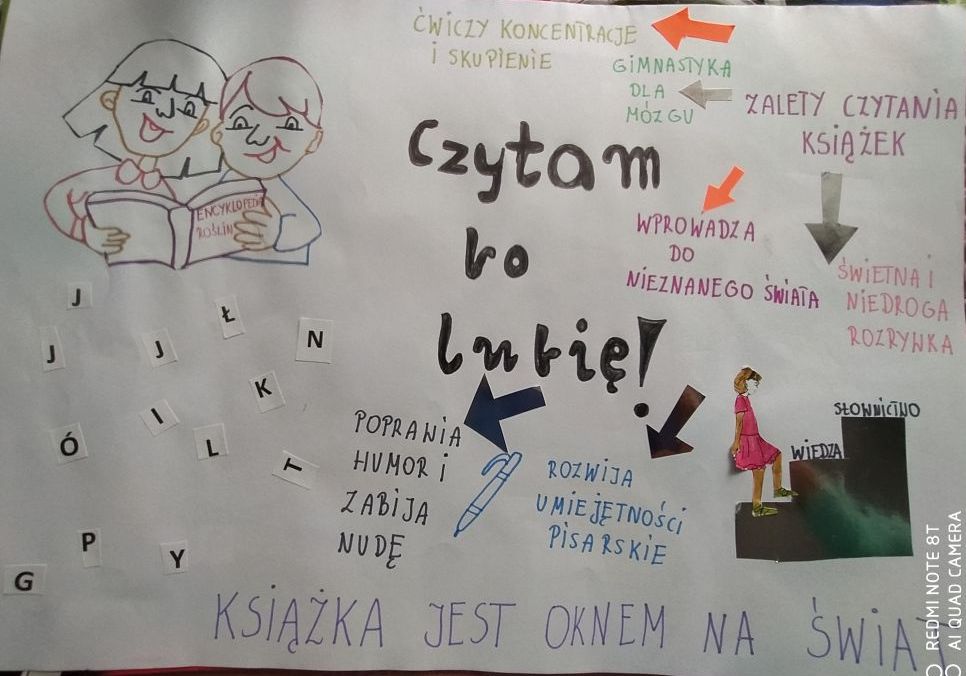 ĆWICZY KONCENTRACJE
I SKUPIENIE
GIMNASTYKA
DLA
MÓZGU
ZALETY CZYTANIA
KSIĄŻEK
Czytam
to
lubię!
WPROWADZA
DO
NIEZNANEGO ŚWIATA
ŚWIETNA I
NIEDROGA
ROZRYWKA
ENCYKLOPEDIA
ROŚLIN
J
J
J
Ł
N
K
I
Ó
L
T
P
Y
G
POPRAWIA
HUMOR i
ZABIJA
NUDĘ
ROZWIJA
UMIEJĘTNOŚCI
PISARSKIE
SŁOWNICTWO
WIEDZA
KSIĄŻKA JEST OKNEM NA ŚWIAT
REDMI NOTE 8T
AI QUAD CAMERA